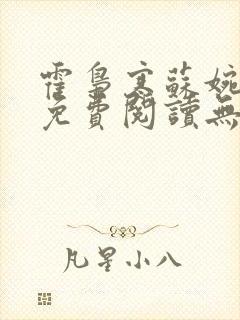 霍梟寒蘇婉
免費閱讀無
凡星小八